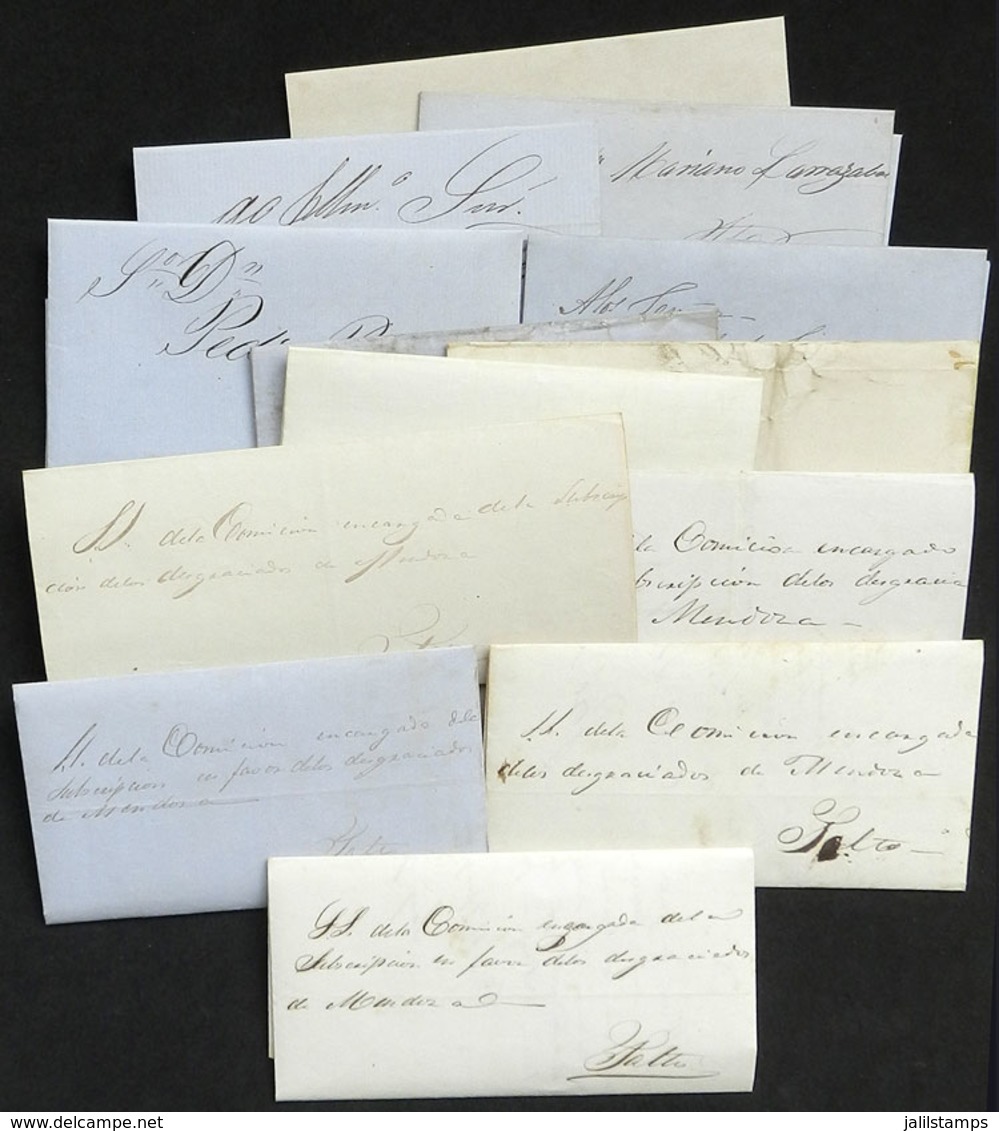 Mariano Larrazabal
Sor Dn
Pedro
SS. dela Comicion encargada dela Subscrip
cion delos desgraciados de Mendoza
dela Comicion encargada
bscripcion delos desgracia
Mendoza
SS. dela Comicion encargada dela
Subscripcion en favor delos desgraciados
de Mendoza
Salto
SS. dela Comicion encargada
delos desgraciados de Mendoza
Salto
SS. dela Comicion encargada dela
Subscripcion en favor delos desgraciados
de Mendoza
Salto
delcampe.net
jalilstamps